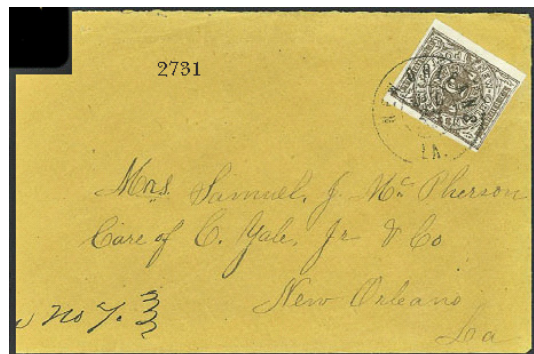 2731
NEW
LA.
Mrs. Samuel. J. Mc Pherson
Care of C. Yale, Jr & Co
New Orleans
La
No 7.